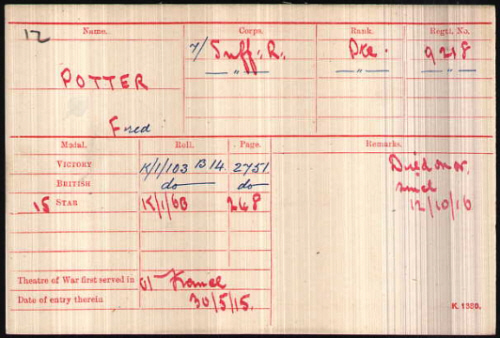 12
Name. Corps. Rank. Regtl. No.
POTTER 7/Suff: R. Pte. 9218
—"— —"— —"—
Fred
Medal. Roll. Page. Remarks.
VICTORY K/1/103 B14. 2751 Died on or
BRITISH do do since
15 STAR K/1/6B 248 12/10/16
Theatre of War first served in 01- France
Date of entry therein 30/5/15.
K. 1380.